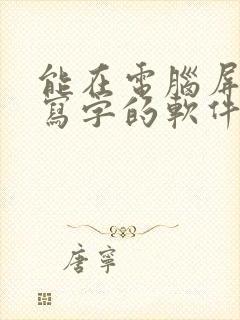 能在電腦屏
寫字的軟件
唐寧